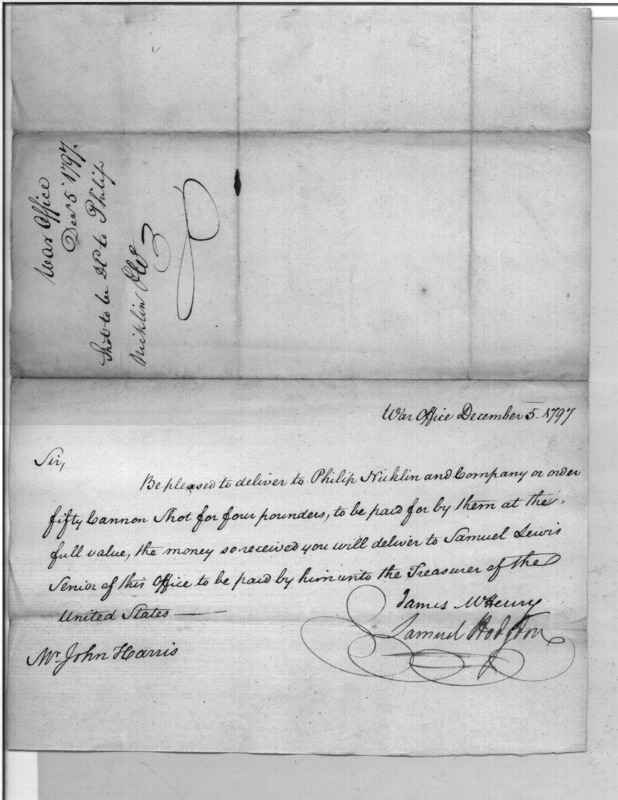 War Office
Decr 5. 1797.
Shot to be Dd to Philip
Nicklin & Co
War Office December 5. 1797
Sir,
Be pleased to deliver to Philip Nicklin and Company or order
fifty Cannon Shot for four pounders, to be paid for by them at the
full value, the money so received you will deliver to Samuel Lewis
Senior of this Office to be paid by him unto the Treasurer of the
United States —
James McHenry
Samuel Hodgdon
Mr John Harris